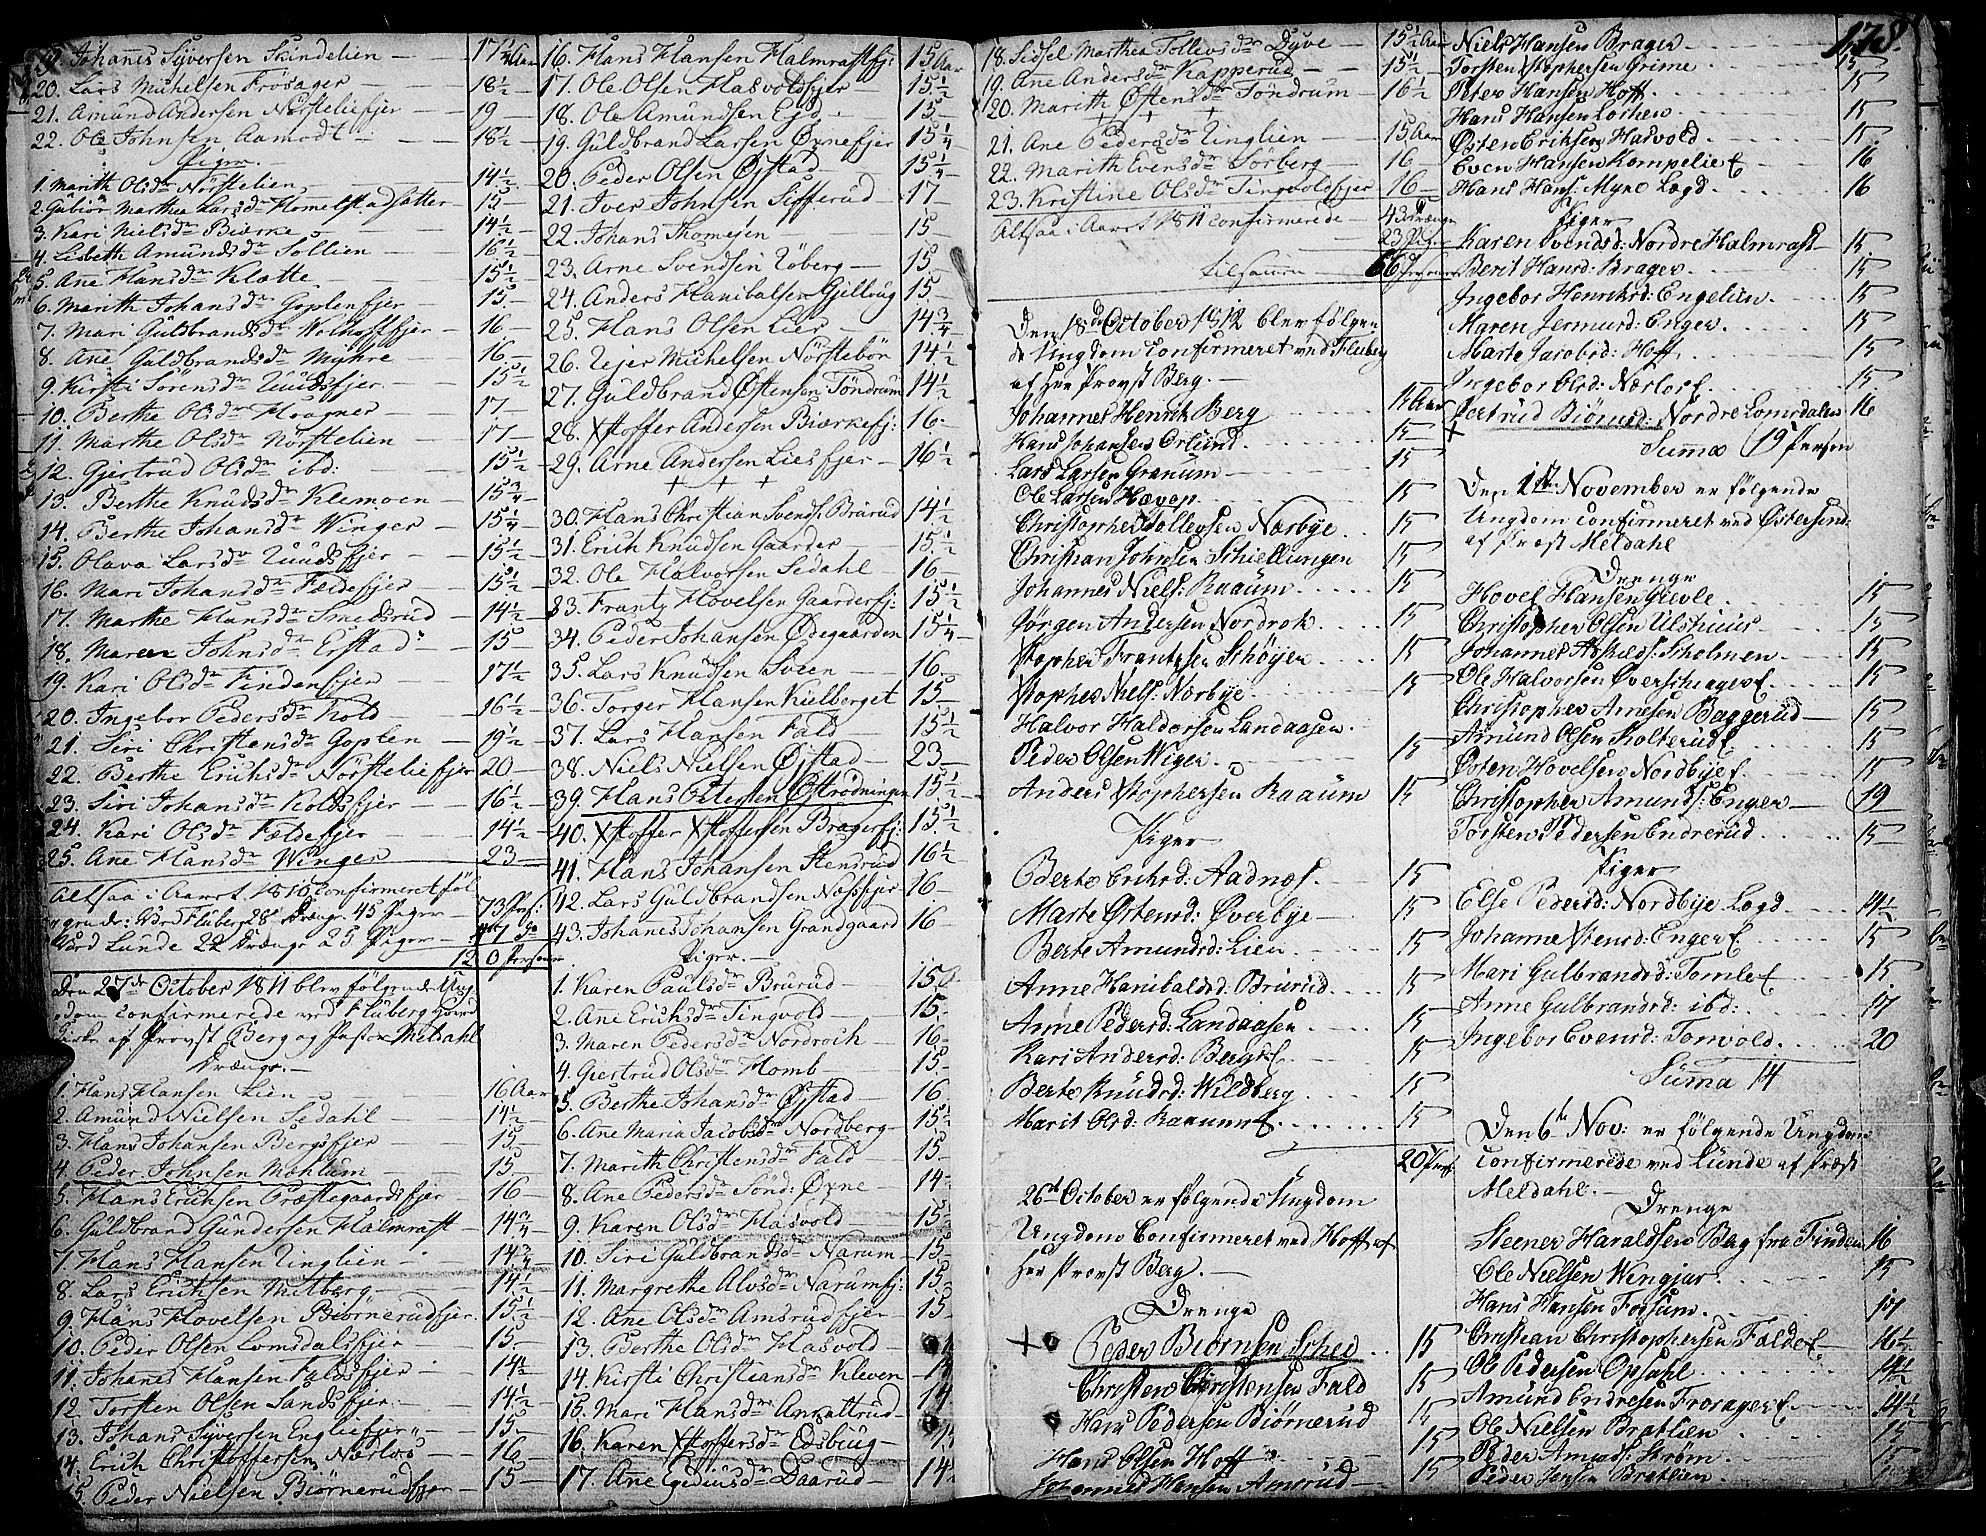 178.
19. Johanes Syversen Skindelien — 17½ Aar
20. Lars Michelsen Frøsager — 18½
21. Amund Andersen Nørsteliefjer — 19
22. Ole Johnsen Aamodt — 18½
Piger.
1. Marith Olsdr Nørstelien — 14½
2. Gubiør Marthea Larsdr Homelstadsætter — 15
3. Kari Nielsdr Biørke — 14½
4. Lisbeth Amundsdr Sollien — 16½
5. Ane Hansdr Klætte — 15½
6. Marith Johansdr Goplenfjer — 15
7. Mari Guldbrandsdr Wolhoffjer — 16
8. Ane Guldbrandsdr Myhre — 16
9. Kirsti Sørensdr Ruudsfjer — 15½
10. Berthe Olsdr Haagner — 17
11. Marthe Olsdr Nørstelien — 17
12. Gjertrud Olsdr ibd: — 15½
13. Berthe Knudsdr Klemoen — 15¾
14. Berthe Johansdr Winger — 15¼
15. Olava Larsdr Ruudsfjer — 15½
16. Mari Johansdr Fældefjer — 15½
17. Marthe Hansdr Smedsrud — 14½
18. Maren Johnsdr Erstad — 15
19. Kari Olsdr Findenfjer — 17½
20. Ingebor Pedersdr Kold — 16½
21. Siri Christensdr Goplen — 19½
22. Berthe Erichsdr Nørsteliefjer 20
23. Siri Johansdr Koldsfjer — 16½
24. Kari Olsdr Fældefjer — 14½
25. Ane Hansdr Winger — 23
Altsaa i Aaret 1810 Confirmeret føl
gende: Ved Fluberg 28 Drenge 45 Piger — 73 Pers:
Ved Lunde 22 Drenge 25 Piger — 47 do
120 Personer
Den 27de October 1811 blev følgende Ung
dom Confirmerede ved Fluberg Hoved
Kirke af Provst Berg og Pastor Meldahl
Drenge.
1. Hans Hansen Lien — 16 Aar
2. Amund Nielsen Sedahl — 14½
3. Hans Johansen Bergsfjer — 15
4. Peder Johnsen Mæhlum — 15
5. Hans Erichsen Præstegaardsfjer — 16
6. Guldbrand Gundersen Halmrast — 14¾
7. Hans Hansen Ringlien — 14¾
8. Lars Erichsen Milberg — 14½
9. Hans Hovelsen Biørnerudfjer — 15½
10. Peder Olsen Lomsdalsfjer — 15
11. Johanes Hansen Faldsfjer — 14½
12. Torsten Olsen Sandsfjer — 14½
13. Johans Syversen Engliefjer — 15
14. Erich Christoffersen Nærlos — 16
15. Peder Nielsen Biørnerudfjer — 15
16. Hans Hansen Halmrastfj: 15 Aar
17. Ole Olsen Hasvoldfjer 15½
18. Ole Amundsen Egd — 15
19. Guldbrand Larsen Øxnefjer 15¼
20. Peder Olsen Øfstad — 15¼
21. Iver Johnsen Sifferud — 17
22. Johans Thomesen — 15
23. Arne Svendsen Røberg — 15
24. Anders Hanibalsen Gjillrug 15
25. Hans Olsen Lier — 14¾
26. Rejer Michelsen Nørstebøn 14½
27. Guldbrand Østensen Tøndrum 14½
28. Xstoffer Andersen Biørkefj: 16
29. Arne Andersen Liesfjer — 16½
+ + +
30. Hans Christian Svends: Brurud 14½
31. Erich Knudsen Gaarder — 15½
32. Ole Halvorsen Sedahl — 16
33. Frantz Hovelsen Gaardersfj: 15½
34. Peder Johansen Ødegaarden 15¼
35. Lars Knudsen Sveen — 16
36. Torger Hansen Kielberget 15
37. Lars Hansen Fald — 15½
38. Niels Nielsen Øfstad — 23
39. Hans Petersen Østrødningen 15½
40. Xstoffer Xstoffersen Bragerfj: 15½
41. Hans Johansen Stensrud 16½
42. Lars Guldbrandsen Næssfjer 16
43. Johanes Johansen Grandgaard 16
Piger.
1. Karen Paulsdr Brurud — 15
2. Ane Erichsdr Tingvold — 15
3. Maren Pedersdr Nordroch — 16
4. Giertrud Olsdr Homb — 15
5. Berthe Johansdr Øfstad — 16
6. Ane Maria Jacobsdr Nordberg — 15½
7. Marith Christensdr Fald — 15
8. Ane Pedersdr Sønd: Øxne — 14
9. Karen Olsdr Hasvold — 15½
10. Siri Guldbrandsdr Narum — 15
11. Margrethe Alvsdr Narumfj: 15
12. Ane Olsdr Amsrudfjer 15
13. Berthe Olsdr Hasvold —
14. Kirsti Christiansdr Kleven — 14
15. Mari Hansdr Anrattrud — 14
16. Karen Xstoffersdr Edsbrug
17. Ane Egidiusdr Daarud — 14
18. Sidsel Marthea Tollevsdr Dyve — 15½ Aar
19. Ane Andersdr Kapperud — 15½
20. Marith Østensdr Tøndrum — 16½
+ + +
21. Ane Pedersdr Ringlien — 15 Aar
22. Marith Evensdr Sørberg — 16
23. Kristine Olsdr Tingvoldsfjer — 16
Altsaa i Aaret 1811 Confirmerede — 43 Drenge
23 Pig:
tilsamen — 66 Personer
Den 18de October 1812 blev følgen
de Ungdom Confirmeret ved Fluberg
af Her Provst Berg.
Johannes Henrik Berg 15 Aar
Hans Johansen Ørlund. 15
Lars Larsen Granum 15
Ole Larsen Hæven 15
Christopher Tollevsen Nørbye 15
Christian Johnsen Schiellungen 15
Johannes Niels: Raaum 15
Jørgen Andersen Nordrok 15
Xtopher Frantzsen Schøyen 15
Xtopher Niels: Nørbye 15
Halvor Haldorsen Landaasen
Peder Olsen Wiger 15
Anders Xtophersen Raaum 15
Piger
Berte Erikrd: Aadnes. 15
Marte Østensd: Øverbye 15
Berte Amundsd: Lien 15
Anne Hanibalsd: Brurud 15
Anne Pedersd: Landaasen 15
Kari Andersd: Bergsf. 15
Berte Knudsd: Wildberg 15
Marit Olsd: Raaumf. 15
20 Pers.
26de October er følgende Ungdom
Ungdom Confirmeret ved Hoff af
Her Provst Berg.
Drenge
+ Peder Biørnsen Schee 15
Christen Christensen Fald 15
Hans Pedersen Biørnerud 15
Hans Olsen Hoff 15
Johannes Hansen Amsrud 15
Niels Hansen Brager
Torsten Xtophersen Grime 15
Peter Hansen Hoff 15
Hans Hansen Lothen 15
Østen Eriksen Hasvold 15
Even Hansen Kompelief 16
Hans Hans: Myre Lægd 16
Piger
Karen Svendsd: Nordre Halmrast 15
Berit Hansd: Brager 15
Ingebor Henriksd: Engelien 15
Maren Jermunsd: Enger 15
Marte Jacobsd: Hoff 15
Ingebor Olsd: Nærlosf. 15
Gertrud Biørnsd: Nordre Lomsdalen 16
+
Summa 19 Person
Den 1ste November er følgende
Ungdom confirmeret ved Østersind
af Præst Meldahl
Drenge
Hovel Hansen Grevle 15
Christopher Olsen Ulshuus 15
Johannes Askilds: Scholmen 15
Ole Halvorsen Øverschagerf. 15
Christopher Arnesen Baggerud 15
Amund Olsen Kolterudf. 15
Østen Hovelsen Nordbyef. 15
Christopher Amunds: Enger 19
Torsten Pedersen Endrerud 15
Piger
Else Pedersd: Nordbye Lægd 14½
Johanne Stensd: Engerf. 15
Mari Gulbrandsd: Tomlef. 15
Anne Gulbrandsd: ibd: 17
Ingebor Evensd: Tonvold 20
Suma 14
Den 6te Nov: er følgende Ungdom
Confirmerede ved Lunde af Præst
Meldahl.
Drenge
Steener Haraldsen Berg fra Finden 16
Ole Nielsen Wengjar 15
Hans Hansen Fossum 17
Christian Christophersen Faldef. 16½
Ole Pedersen Opsahl 14½
Amund Endresen Frosagerf. 14½
Ole Nielsen Bratlien 15
Peder Amunds: Strøm 15
Peder Jensen Bratlien